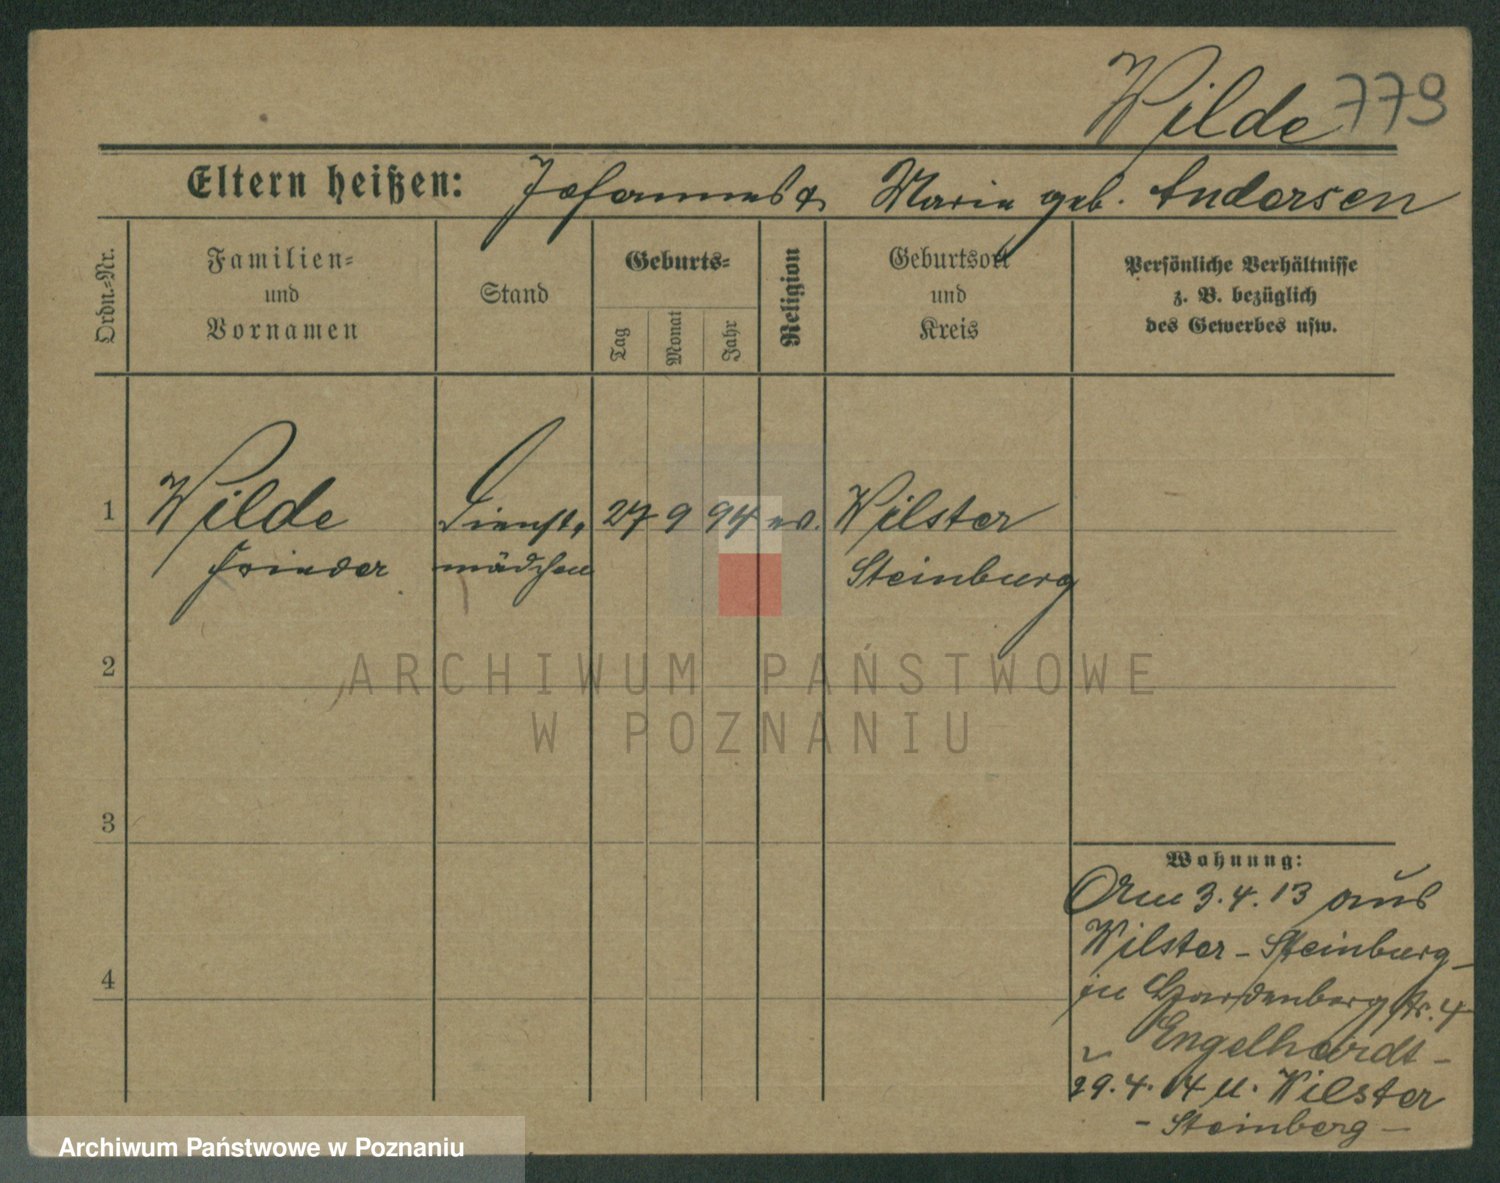 Wilde 779
Eltern heißen: Johannes & Marie geb. Andersen
Ordn.-Nr.
Familien-
und
Vornamen
Stand
Geburts-
Tag
Monat
Jahr
Religion
Geburtsort
und
Kreis
Persönliche Verhältnisse
z. B. bezüglich
des Gewerbes usw.
1 Wilde Dienst, 27 9 94 ev. Wilster
mädchen Steinburg
2
3
4
Wohnung:
3.4.13 aus
Wilster - Steinburg -
in Hardenbergstr. 4
Engelhardt -
29.4.14 u. Wilster
- Steinberg -
ARCHIWUM PAŃSTWOWE
W POZNANIU
Archiwum Państwowe w Poznaniu